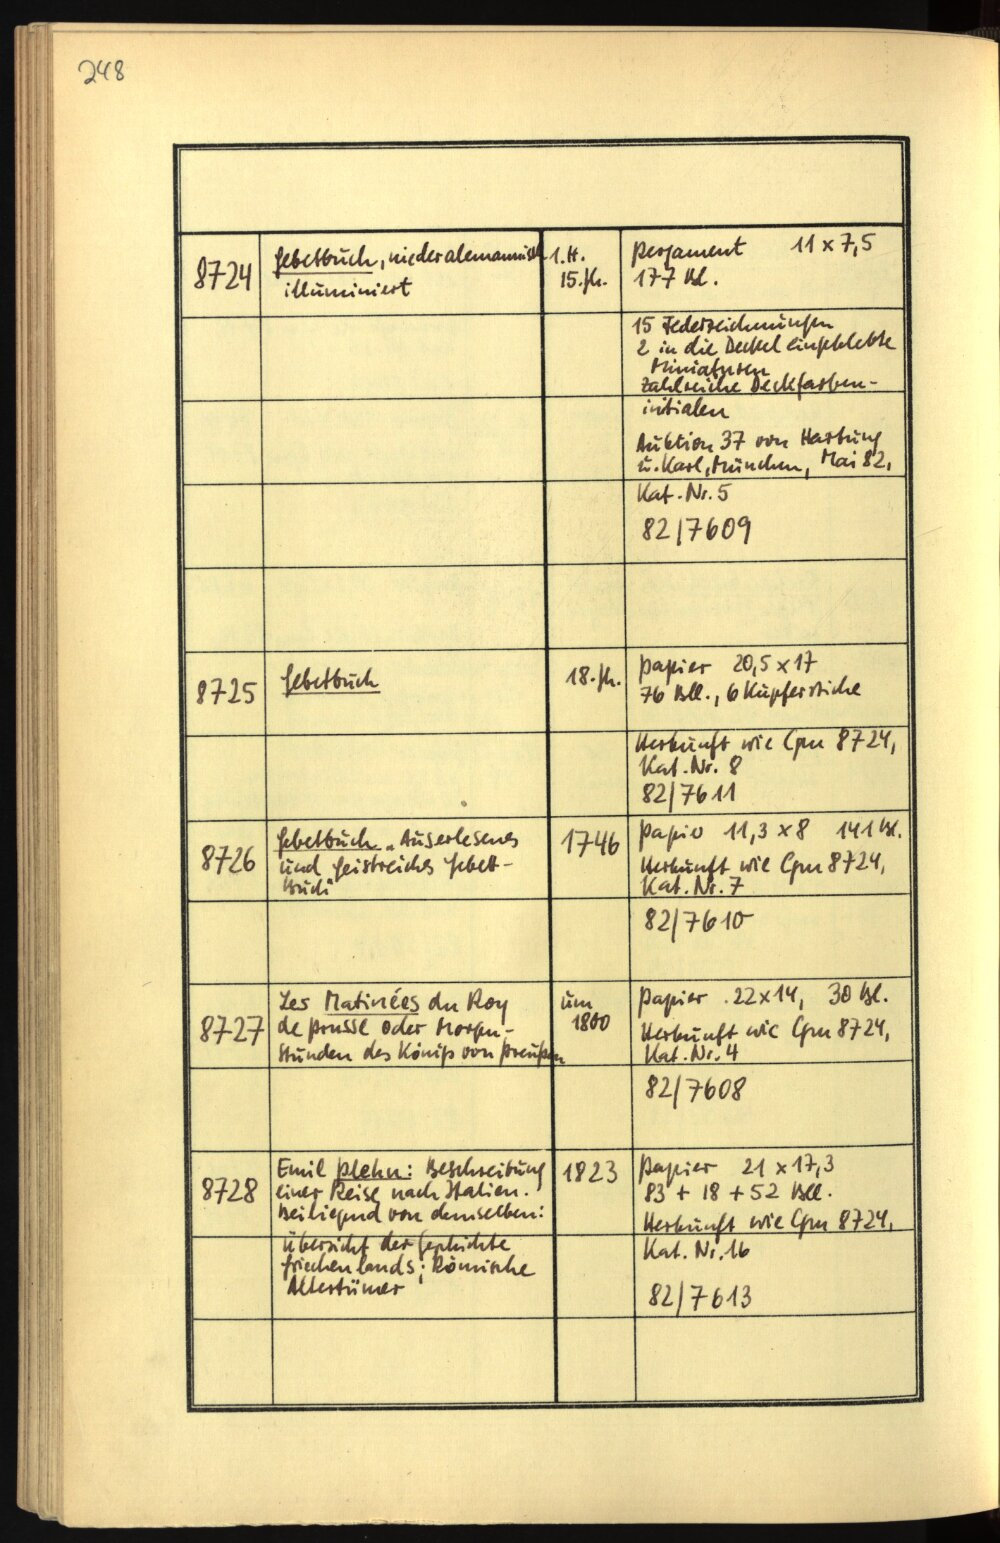 248
8724
Gebetbuch, niederalemannisch
illuminiert
1. H.
15. Jh.
Pergament 11 x 7,5
177 Bl.
15 Federzeichnungen
2 in die Deckel eingeklebte
Miniaturen
Zahlreiche Deckfarben-
initialen
Auktion 37 von Hartung
u. Karl, München, Mai 82,
Kat. Nr. 5
82/7609
8725
Gebetbuch
18. Jh.
Papier 20,5 x 17
76 Bll., 6 Kupferstiche
Herkunft wie Cgm 8724,
Kat. Nr. 8
82/7611
8726
Gebetbuch „Auserlesenes
und Geistreiches Gebett-
Buch"
1746
Papier 11,3 x 8 141 Bl.
Herkunft wie Cgm 8724,
Kat. Nr. 7
82/7610
8727
Les Matinées du Roy
de Prusse oder Morgen-
stunden des Königs von Preußen
um
1800
Papier 22x14, 30 Bl.
Herkunft wie Cgm 8724,
Kat. Nr. 4
82/7608
8728
Emil Plehn: Beschreibung
einer Reise nach Italien.
Beiliegend von demselben:
Übersicht der Geschichte
Griechenlands; Römische
Altertümer
1823
Papier 21 x 17,3
83 + 18 + 52 Bll.
Herkunft wie Cgm 8724,
Kat. Nr. 16
82/7613